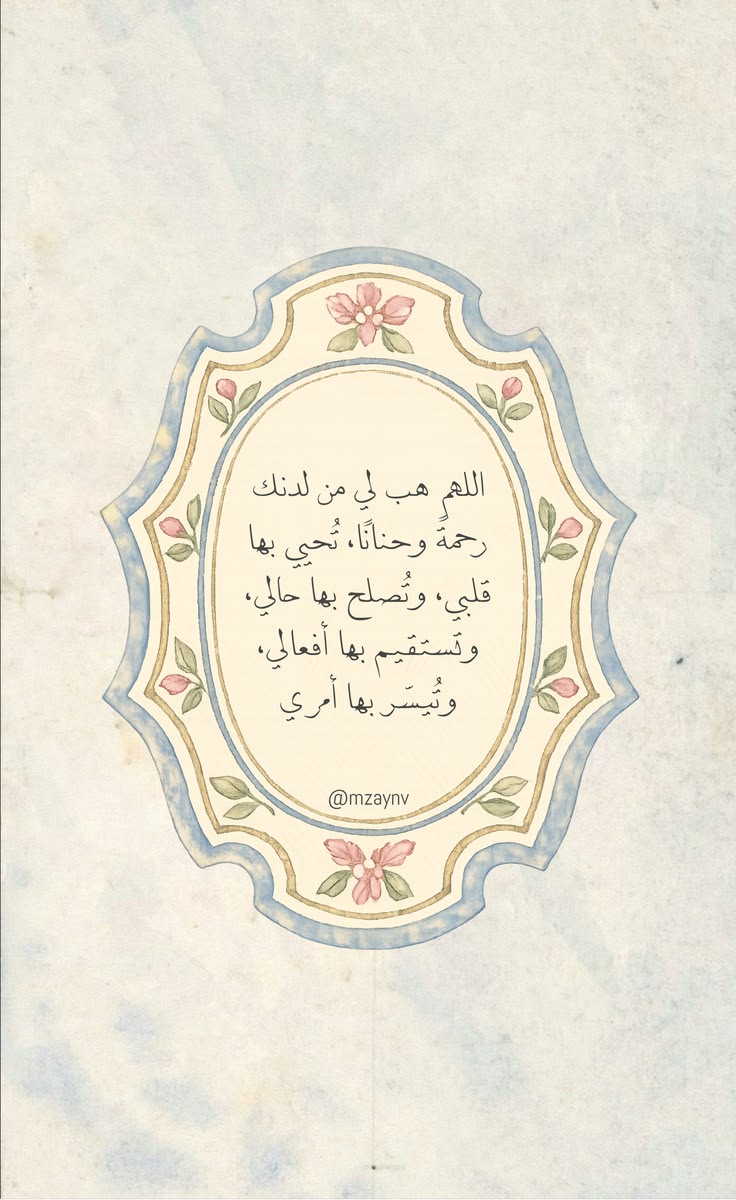 اللهم هب لي من لدنك
رحمةً وحنانًا، تُحيي بها
قلبي، وتُصلح بها حالي،
وتستقيم بها أفعالي،
وتُيسّر بها أمري
@mzaynv